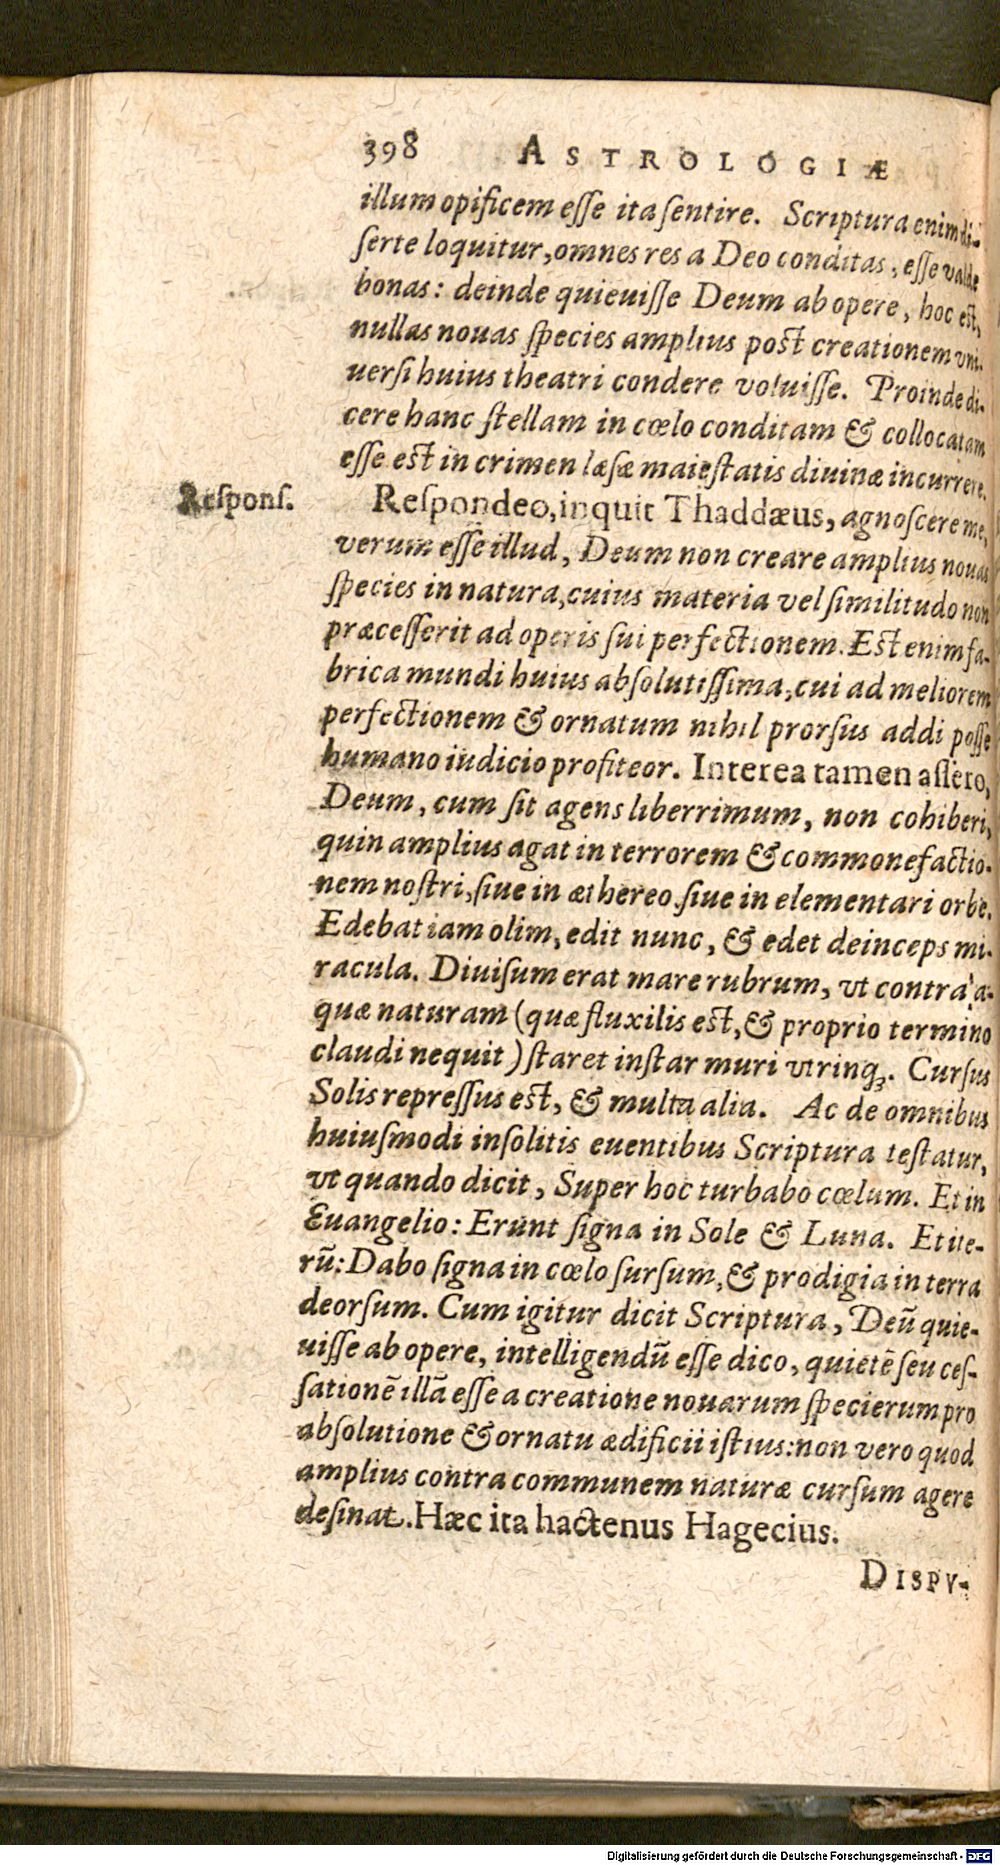 398 ASTROLOGIÆ
illum opificem eſſe ita ſentire. Scriptura enim di-
ſerte loquitur, omnes res a Deo conditas, eſſe valde
bonas: deinde quieuiſſe Deum ab opere, hoc eſt,
nullas nouas ſpecies amplius poſt creationem vni-
uerſi huius theatri condere voluiſſe. Proinde di-
cere hanc ſtellam in cœlo conditam & collocatam
eſſe eſt in crimen læſæ maieſtatis diuinæ incurrere.
Reſponſ.
Reſpondeo, inquit Thaddæus, agnoſcere me,
verum eſſe illud, Deum non creare amplius nouas
ſpecies in natura, cuius materia vel ſimilitudo non
præceſſerit ad operis ſui perfectionem. Eſt enim fa-
brica mundi huius abſolutiſſima, cui ad meliorem
perfectionem & ornatum nihil prorſus addi poſſe
humano iudicio profiteor. Interea tamen aſſero,
Deum, cum ſit agens liberrimum, non cohiberi,
quin amplius agat in terrorem & commonefactio-
nem noſtri, ſiue in æthereo, ſiue in elementari orbe.
Edebat iam olim, edit nunc, & edet deinceps mi-
racula. Diuiſum erat mare rubrum, vt contra a-
quæ naturam (quæ fluxilis eſt, & proprio termino
claudi nequit) ſtaret inſtar muri vtrinq;. Curſus
Solis repreſſus eſt, & multa alia. Ac de omnibus
huiuſmodi inſolitis euentibus Scriptura teſtatur,
vt quando dicit, Super hoc turbabo cœlum. Et in
Euangelio: Erunt ſigna in Sole & Luna. Et ite-
rũ: Dabo ſigna in cœlo ſurſum, & prodigia in terra
deorſum. Cum igitur dicit Scriptura, Deũ quie-
uiſſe ab opere, intelligendũ eſſe dico, quietẽ ſeu ceſ-
ſationẽ illã eſſe a creatione nouarum ſpecierum pro
abſolutione & ornatu ædificii iſtius: non vero quod
amplius contra communem naturæ curſum agere
deſinat. Hæc ita hactenus Hagecius.
DISPV-
Digitalisierung gefördert durch die Deutsche Forschungsgemeinschaft - DFG